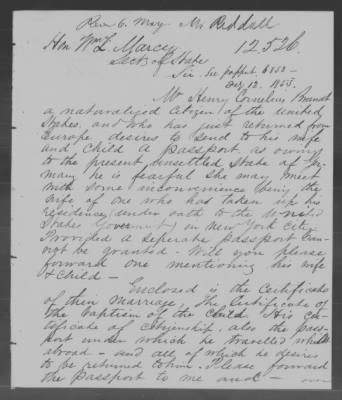 Rec 6. May Mr Riddall
Hon Wm L Marcy 12,526
Sect of State
Sir. See passpt. 6850 -
Decr 12. 1853.
Mr Henry Cornelius Brandt
a naturalized Citizen of the United
States, and who has just returned from
Europe, desires to send to his wife
and Child a passport as owing
to the present unsettled State of Ger-
many he is fearful she may meet
with some inconvenience being the
wife of one who has taken up his
residence (under oath to the United
States Government) in New York City.
Provided a seperate passport can-
not be granted - Will you please
forward one mentioning his wife
& Child -
Enclosed is the Certificate
of their Marriage, The Certificate of
the baptism of the Child His cer-
tificate of Citizenship. also the pass-
port under which he travelled whilst
abroad - and all of which he desires
to be returned to him. Please forward
the passport to me and - over